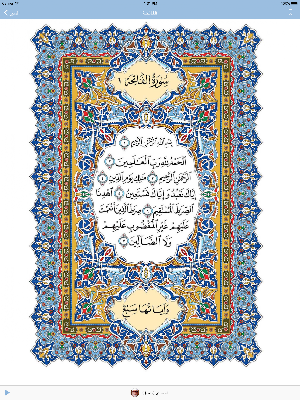 سُورَةُ الفَاتِحَةِ ١
بِسْمِ اللَّهِ الرَّحْمَٰنِ الرَّحِيمِ ١
الْحَمْدُ لِلَّهِ رَبِّ الْعَالَمِينَ ٢
الرَّحْمَٰنِ الرَّحِيمِ ٣ مَالِكِ يَوْمِ الدِّينِ ٤
إِيَّاكَ نَعْبُدُ وَإِيَّاكَ نَسْتَعِينُ ٥ اهْدِنَا
الصِّرَاطَ الْمُسْتَقِيمَ ٦ صِرَاطَ الَّذِينَ أَنْعَمْتَ
عَلَيْهِمْ غَيْرِ الْمَغْضُوبِ عَلَيْهِمْ
وَلَا الضَّالِّينَ ٧
وَآيَاتُهَا سَبْعٌ